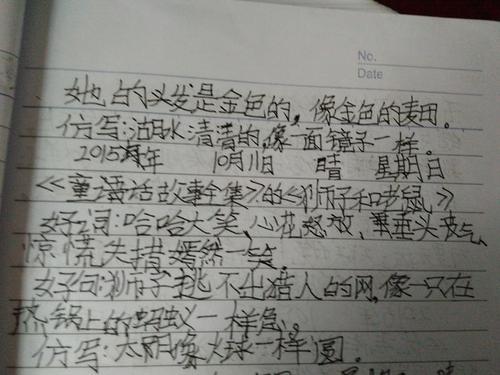 No.
Date
她的头发是金色的，像金色的麦田。
仿写：湖水清清的，像一面镜子一样。
2015年 10月11日 晴 星期日
《童话故事全集》的《狮子和老鼠》
好词：哈哈大笑、心花怒放、垂头丧气、
惊慌失措、嫣然一笑。
好句：狮子逃不出猎人的网，像一只在
热锅上的蚂蚁一样急。
仿写：太阳像火球一样圆。